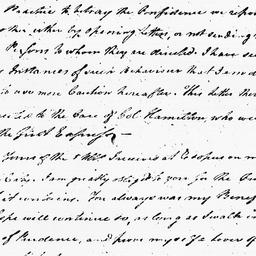 Practice to betray the Confidence we repose
either by opening Letters, or not sending
Persons to whom they are directed. I have se
Instances of such Behaviour that I am d
to use more Caution hereafter. This letter there
to the Care of Col. Hamilton, who we
the first Express—
Yours of the Instant at Esopus on m
I am greatly obliged to you for the
it contains. You always was my Bene
hope will continue so, as long as I walk i
of Prudence, and prove myself a lover of